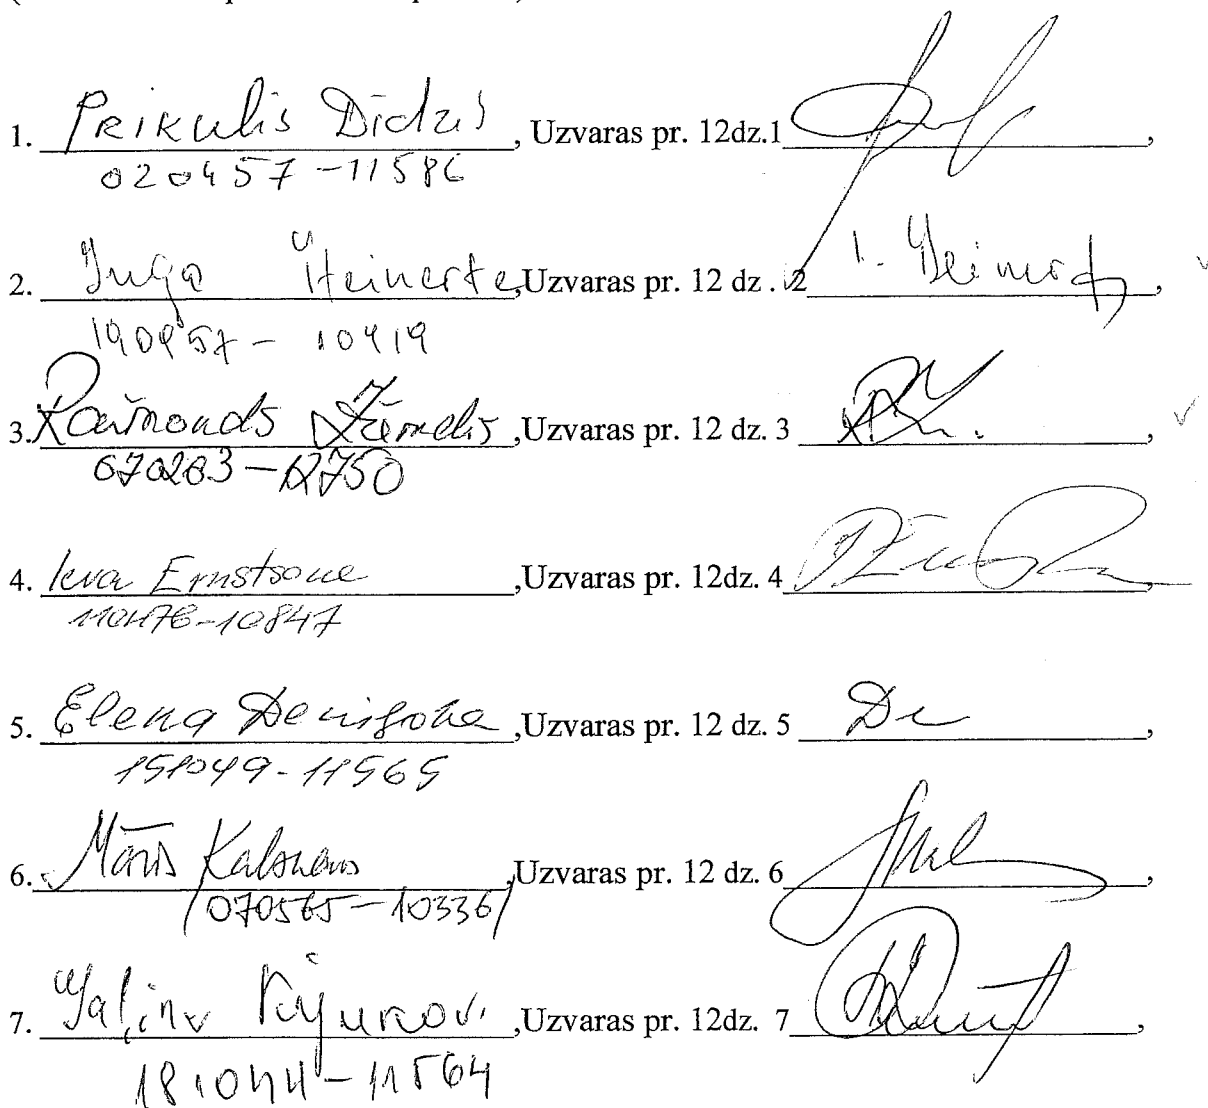 1. Prikulis Didzis, Uzvaras pr. 12dz.1,
020457-11586
2. Inga Šteinerte,Uzvaras pr. 12 dz . 2,
190957- 10419
3. Raimonds Žiemelis ,Uzvaras pr. 12 dz. 3 ,
070283-12750
4. Ieva Ernstsone ,Uzvaras pr. 12dz. 4 ,
110476-10847
5. Elena Denisova ,Uzvaras pr. 12 dz. 5 ,
151049-11565
6. Māris Kalnans ,Uzvaras pr. 12 dz. 6 ,
/070565-10336/
7. ,Uzvaras pr. 12dz. 7 ,
181044-11564